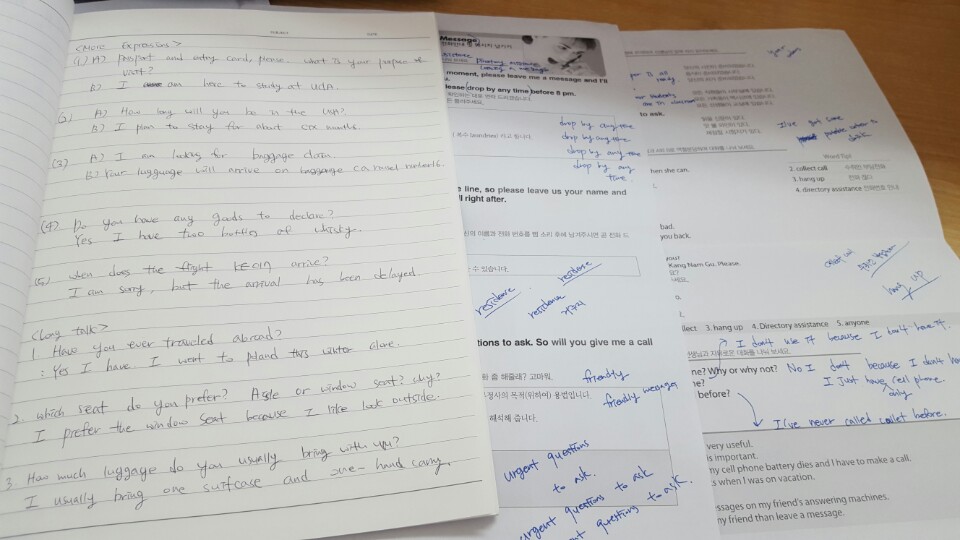 <More Expressions>
(1) A) Passport and entry card, please. What is your purpose of
visit?
B) I am here to study at UCLA.
(2) A) How long will you be in the USA?
B) I plan to stay for about six months.
(3) A) I am looking for baggage claim.
B) Your luggage will arrive on baggage carousel number 6.
(4) Do you have any goods to declare?
Yes I have two bottles of whisky.
(5) When does the flight KE017 arrive?
I am sorry, but the arrival has been delayed
<Long talk>
1. Have you ever traveled abroad?
: Yes I have. I went to Poland this winter alone.
2. Which seat do you prefer? Aisle or window seat? why?
I prefer the window seat because I like look outside.
3. How much luggage do you usually bring with you?
I usually bring one suitcase and one-hand carry.
Message
leaving a message
moment, please leave me a message and I'll
lease drop by any time before 6 pm.
drop by any time
drop by any time
drop by any time
drop by any
time
e line, so please leave us your name and
ll right after.
신의 이름과 전화 번호를 삡 소리 후에 남겨주시면 곧 전화 드
수 있습니다.
residence
residence
residence
거주지
tions to ask. So will you give me a call
좀 해줄래? 고마워.
friendly
friendly message
정사의 목적(위하여) 용법입니다.
해석해 줍니다.
urgent questions
to ask.
urgent questions to ask
questions to ask.
to ask.
I've got some
ask
Word Tips
hen she can.
2. collect call
3. hang up
4. directory assistance 전화번호 안내
bad.
you back.
your
Kang Nam Gu. Please.
요?
세요.
collect call
hang up
llect 3. hang up 4. Directory assistance 5. anyone
I don't use it because I don't have it.
ne? Why or why not?
No I don't because I don't have
ne?
I just have cell phone
only
before?
I've never called collect before.
very useful.
is important.
my cell phone battery dies and I have to make a call.
s when I was on vacation.
ssages on my friend's answering machines.
ny friend than leave a message.